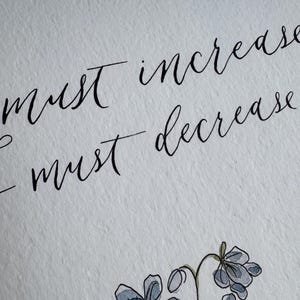 must increase
I must decrease